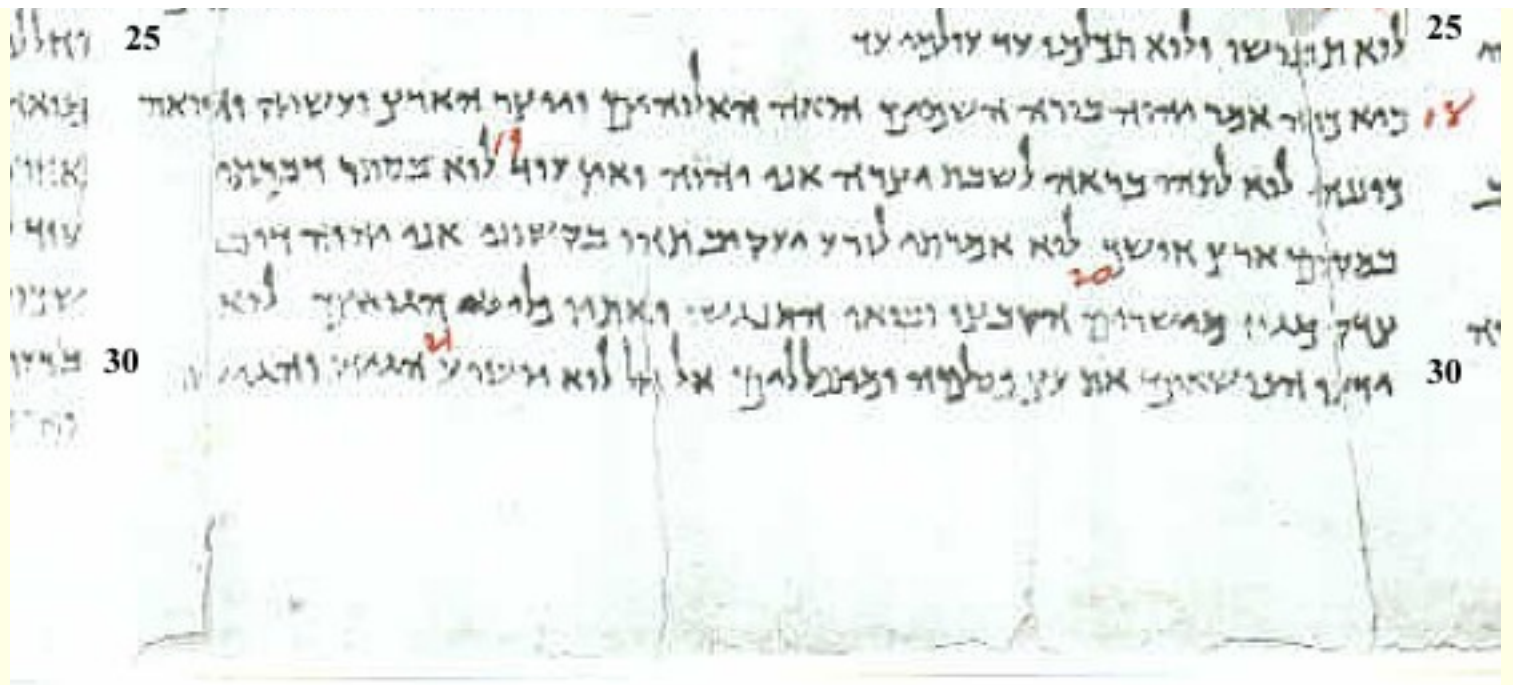 25 לוא תבושו ולוא תכלמו עד עולמי עד 25
18 כיא כוה אמר יהוה בורא השמים הואה האלוהים ויוצר הארץ ועושיה והואה
לוא לתהו בראה לשבת יצרה אני יהוה ואין עוד 19 לוא בסתר דברתי
במקום ארץ חושך לוא אמרתי לזרע יעקוב תהו בקשוני אני יהוה דובר
צדק מגיד מישרים 20 הקבצו ובואו ואתיו הגואים לוא
30 ידעו הנושאים את עץ פסלמה ומתפללים אל אל לוא יושיע 21 הגידו 30